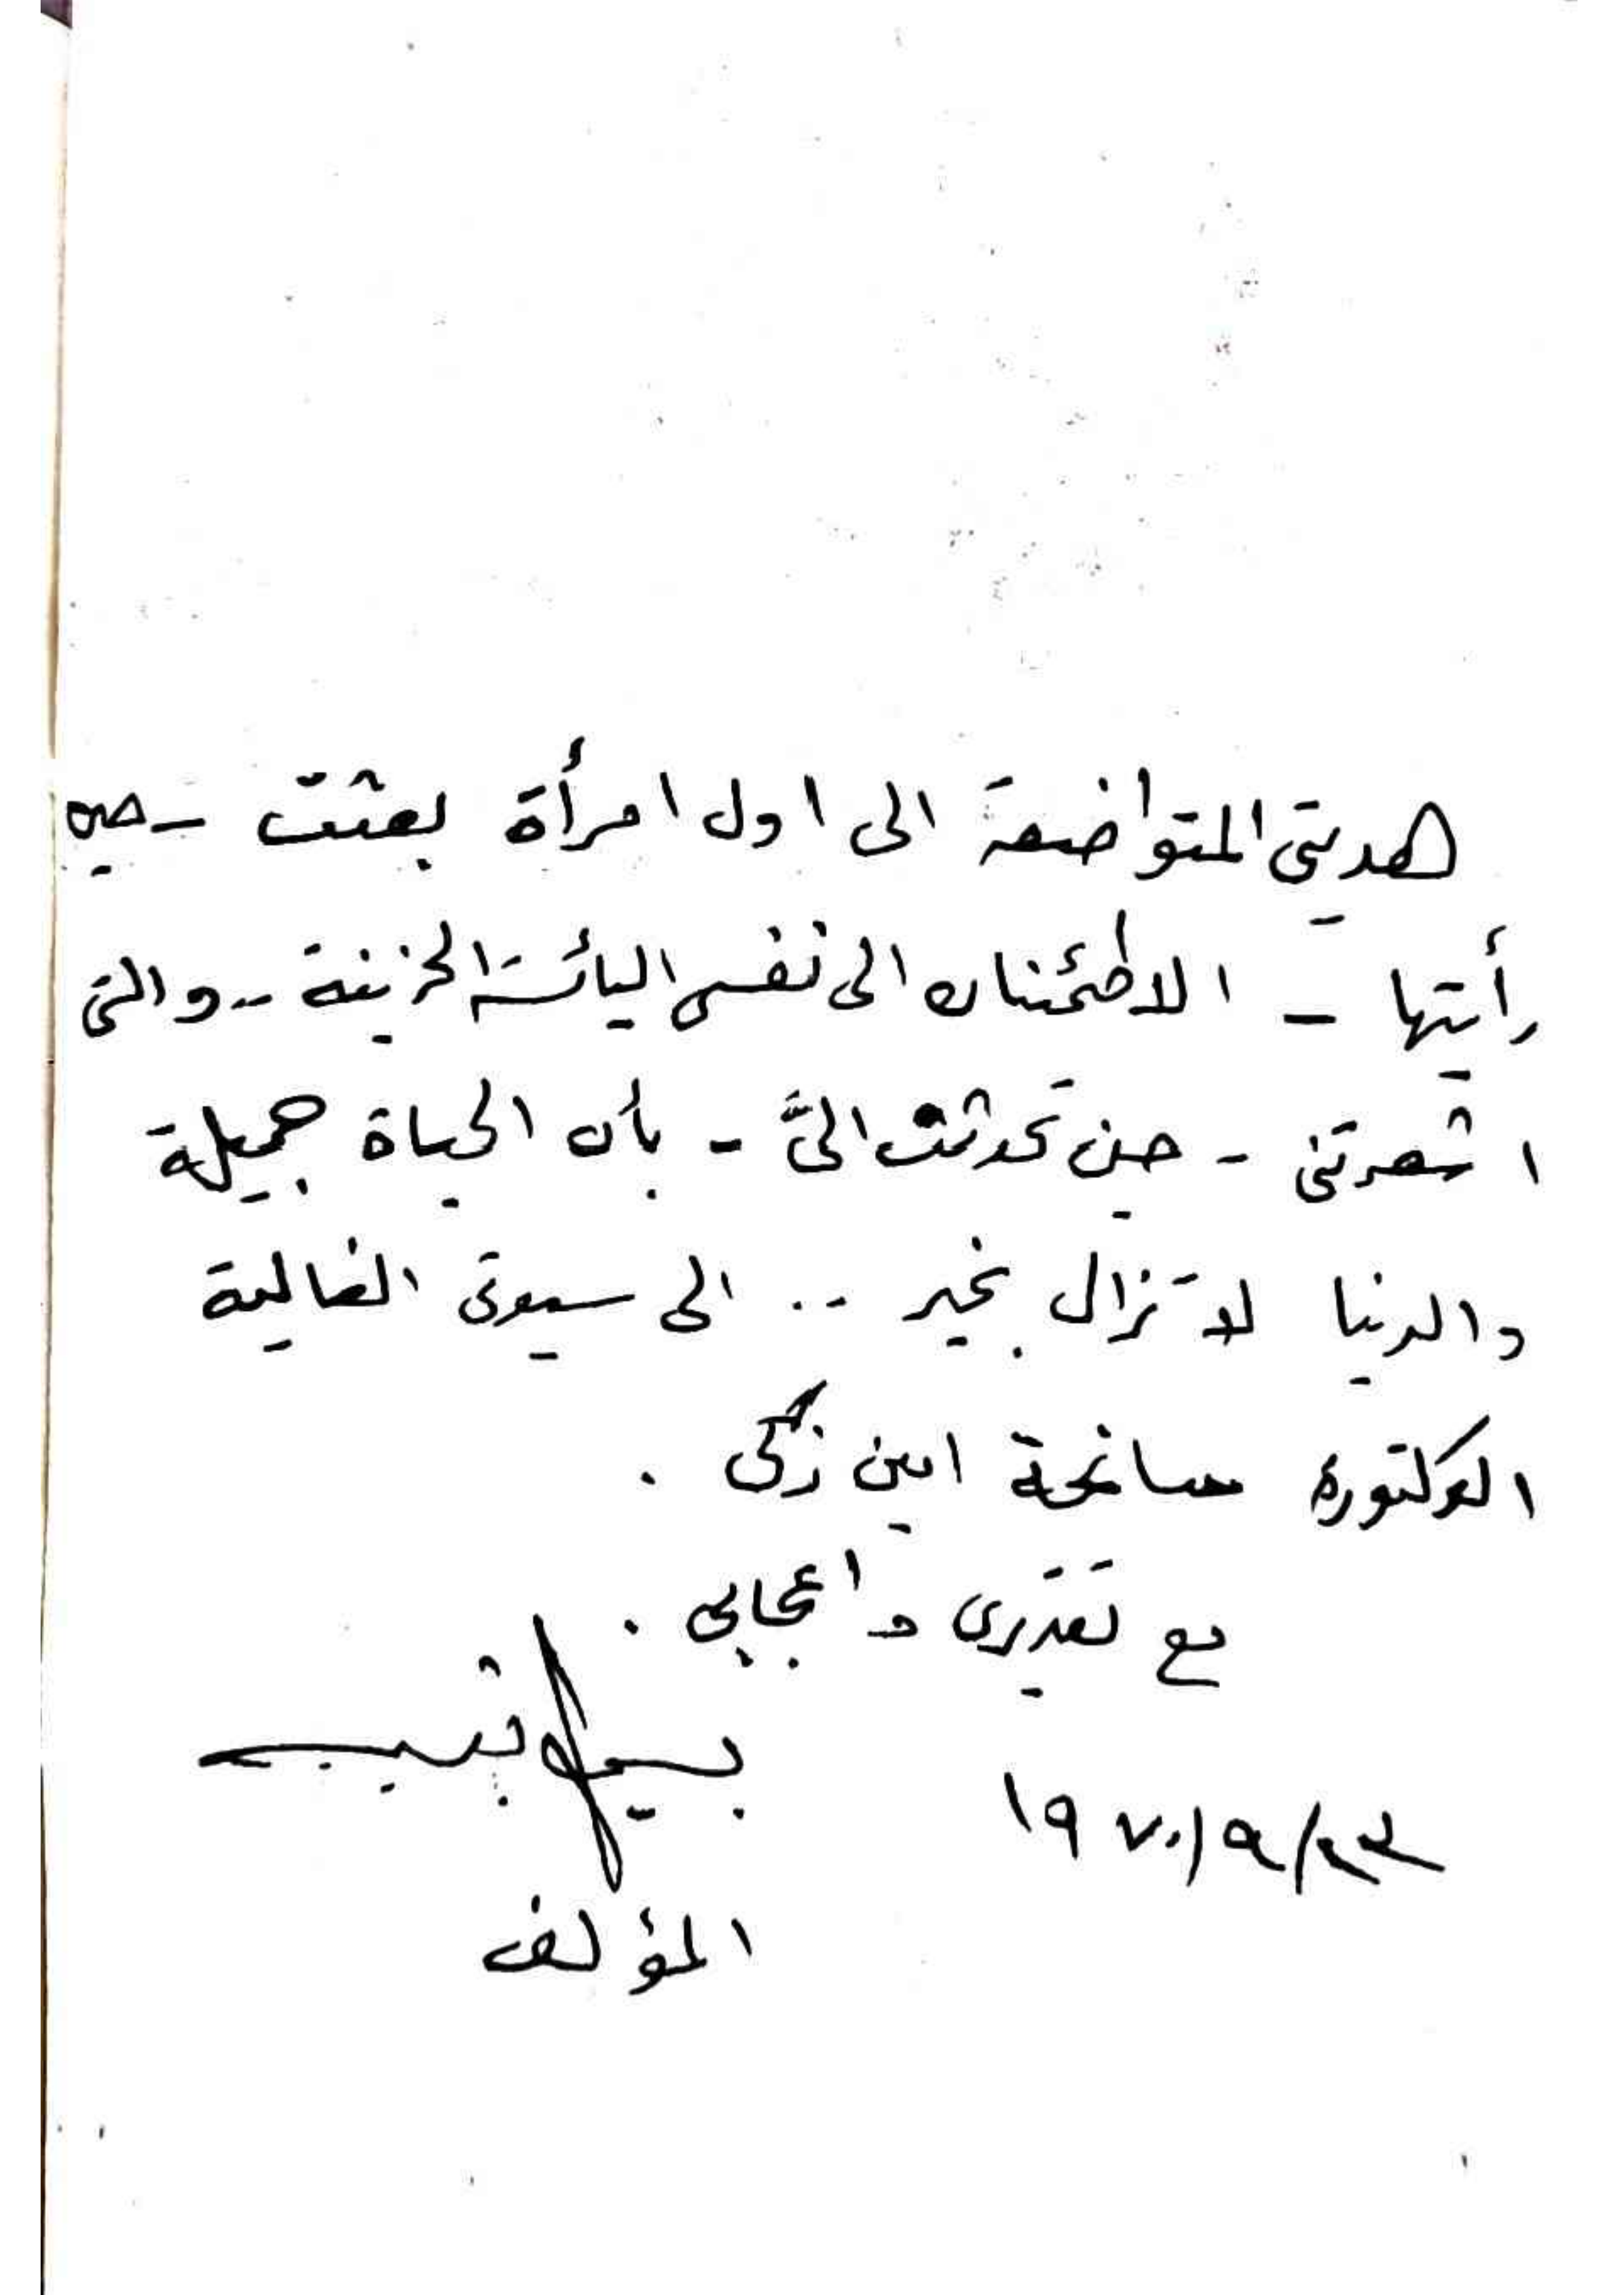 هديتي المتواضعة الى اول امرأة بعثت - حين
رأيتها - الاطمئنان الى نفسي اليائسة الحزينة .. والتي
اشعرتني - حين تحدثت اليَّ - بأن الحياة جميلة
والدنيا لا تزال بخير .. الى سيدتي الغالية
الدكتورة سانحة امين زكي .
مع تقديري واعجابي .
١٩٧٠/٩/٢٣
المؤلف